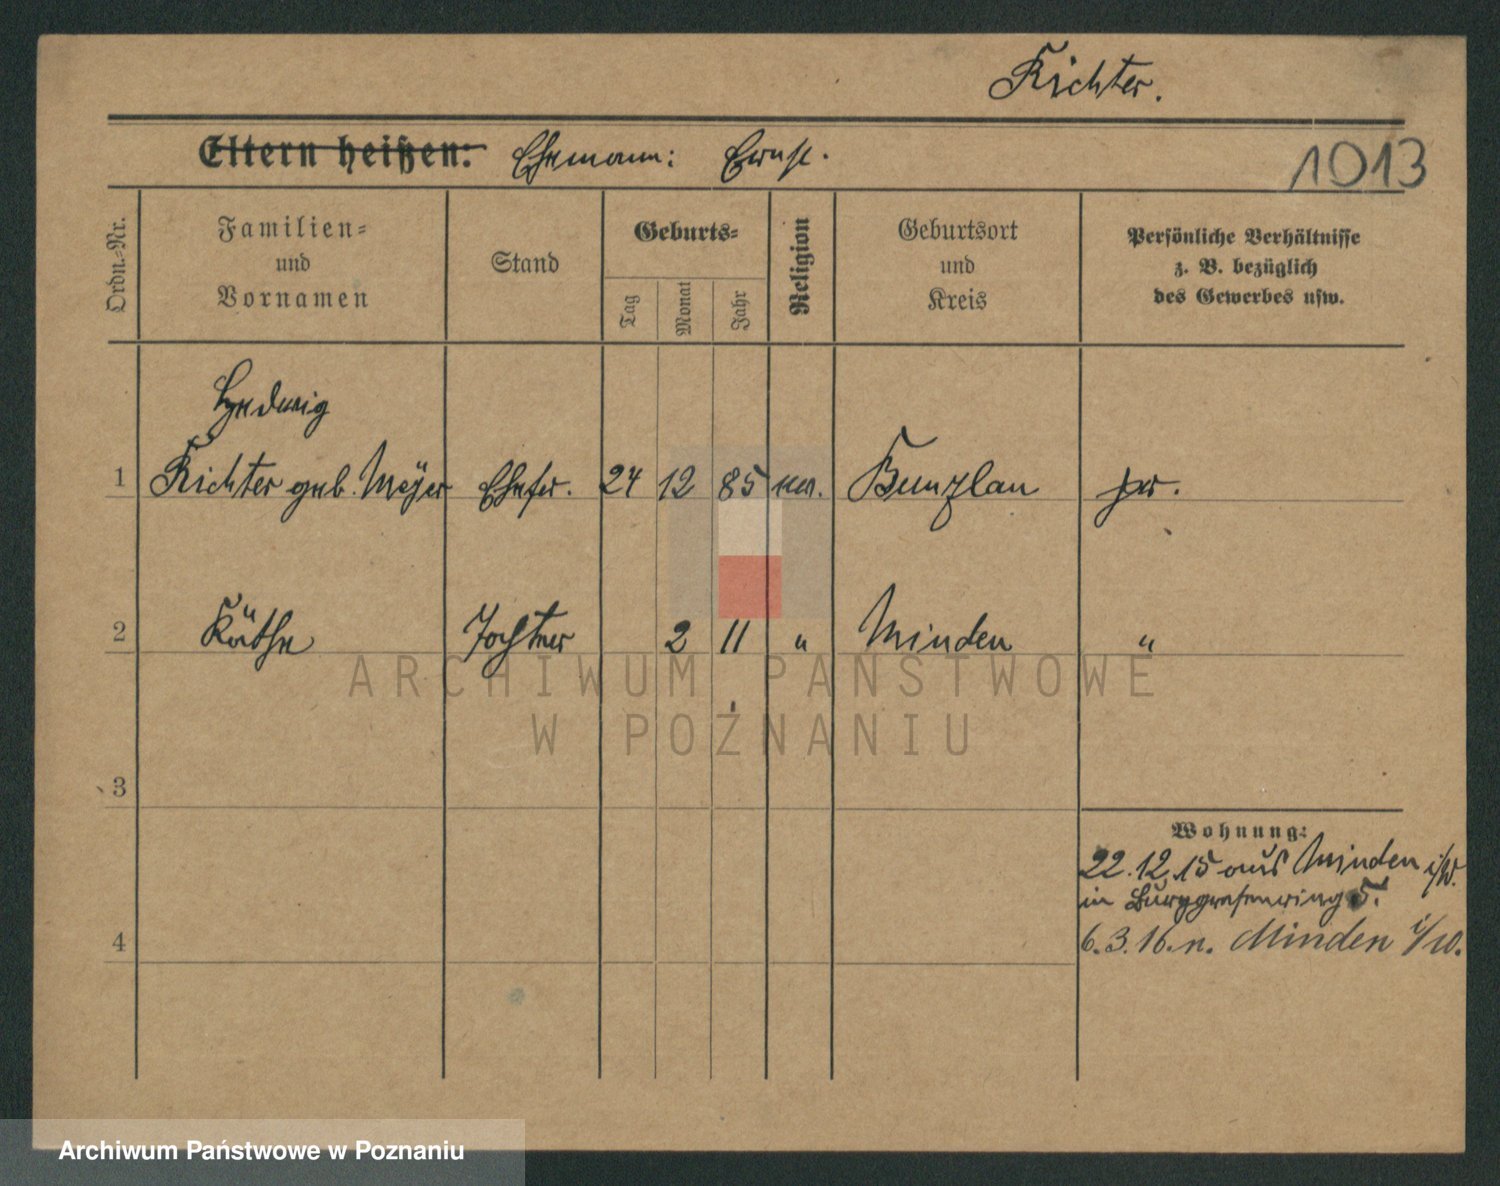 Richter.
Eltern heißen: Ehemann: Ernst.
1013
Ordn.-Nr.
Familien-
und
Vornamen
Stand
Geburts-
Tag
Monat
Jahr
Religion
Geburtsort
und
Kreis
Persönliche Verhältnisse
z. B. bezüglich
des Gewerbes usw.
Hedwig
1 Richter geb. Meÿer Ehefr. 24 12 85 ev. Bunzlau pr.
2 Käthe Tochter 2 11 " Minden "
ARCHIWUM PAŃSTWOWE
W POZNANIU
3
Wohnung:
22.12.15 aus Minden i/W.
in Burggrafenring 5.
4
6.3.16. n. Minden i/W.
Archiwum Państwowe w Poznaniu